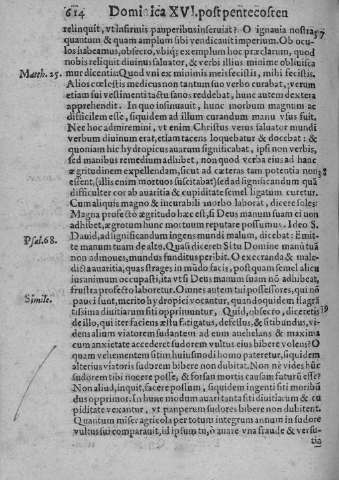 614 Dominica XVI. post pentecosten
relinquit, vt infirmis pauperibus inseruiat? O ignauia nostra
quantum & quam amplum sibi vendicauit imperium. Ob ocu 57
los habeamus, obsecro, vbiq; exemplum hoc præclarum, quod
nobis reliquit diuinus saluator, & verbi illius minime obliuisca
Matth. 25. mur dicentis: Quod vni ex minimis meis fecistis, mihi fecistis.
Alios cœlestis medicus non tantum suo verbo curabat, verum
etiam sui vestimenti tactu sano reddebat, hunc autem dextera
apprehendit. In quo insinuauit, hunc morbum magnum ac
difficilem esse, siquidem ad illum curandum manu vsus fuit.
Nec hoc admiremini, vt enim Christus verus saluator mundi
verbum diuinum erat, etiam tacens loquebatur & docebat: &
quoniam hic hydropicus auarum significabat, ipsi non verbis,
sed manibus remedium adhibet, non quod verba eius ad hanc
ægritudinem expellendam, sicut ad cæteras tam potentia non 58
essent, (illis enim mortuos suscitabat) sed ad significandum quā
difficulter cor ab auaritia & cupiditate semel ligatum curetur.
Cum aliquis magno & incurabili morbo laborat, dicere soles:
Magna profecto ægritudo hæc est, si Deus manum suam ei non
adhibet, ægrotum hunc mortuum reputare possumus. Ideo S.
Psal. 68. Dauid, ad significandum ingens mundi malum, dicebat: Emit-
te manum tuam de alto. Quasi diceret: Si tu Domine manū tuā
non admoues, mundus funditus peribit. O execranda & male-
dicta auaritia, quas strages in mūdo facis, postquam semel alicu
ius animum occupasti, ita vt si Deus manum suam nō adhibeat,
frustra profecto laboretur. Omnes autem tui possessores, qui nō
Simile. pauci sunt, merito hydropici vocantur, quandoquidem flagrā
tissima diuitiarum siti opprimuntur, Quid, obsecro, diceretis 59
de illo, qui iter faciens æstu fatigatus, defessus, & sitibundus, vi-
dens alium viatorem sudantem ad eum anhelans & maxima
cum anxietate accederet sudorem vultus eius bibere volens? O
quam vehementem sitim huiusmodi homo pateretur, siquidem
alterius viatoris sudorem bibere non dubitat. Non ne vides hūc
sudorem tibi nocere posse, & forsan mortis causam futurū esse?
Non aliud, inquit, facere possum, siquidem ingenti siti moribū
dus opprimor. In hunc modum auari tanta siti diuitiarum & cu
piditate vexantur, vt pauperum sudores bibere non dubitent.
Quantum miser agricola per totum integrum annum in sudore
vultus sui comparauit, id ipsum tu, ô auare vna fraude & versu-
tia